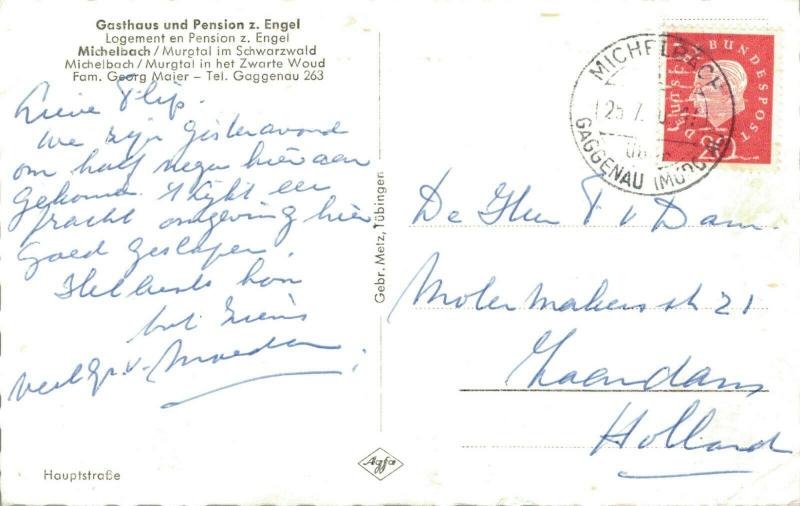 Gasthaus und Pension z. Engel
Logement en Pension z. Engel
Michelbach / Murgtal im Schwarzwald
Michelbach / Murgtal in het Zwarte Woud
Fam. Georg Maier – Tel. Gaggenau 263
Lieve Flip.
We zijn gisteravond
om half negen hier aan
gekomen. 't lijkt een
pracht omgeving hier
Goed geslapen.
Hellends
tot ziens
veel gr. v. Moeder
Hauptstraße
Gebr. Metz, Tübingen
Agfa
MICHELBACH
25.7.
GAGGENAU (MURG
DEUTSCHE BUNDESPOST
De Heer F v Dam.
Molenmakersstr 21
Zaandam
Holland